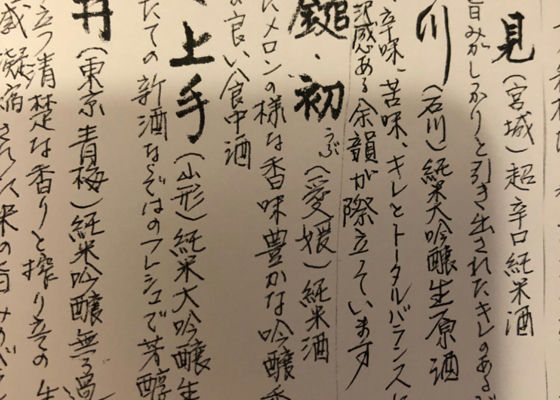 見（宮城）超辛口純米酒
旨みがしっかりと引き出されたキレのある
川（石川）純米大吟醸生原酒
辛味、苦味、キレとトータルバランスに
沢感ある余韻が際立っています
鎚・初うぶ（愛媛）純米酒
たメロンの様な香味豊かな吟醸香
の良い食中酒
上手（山形）純米大吟醸生
たての新酒ならではのフレシュで芳醇
井（東京青梅）純米吟醸無ろ過
立つ清楚な香りと搾り立ての生
米の旨みが